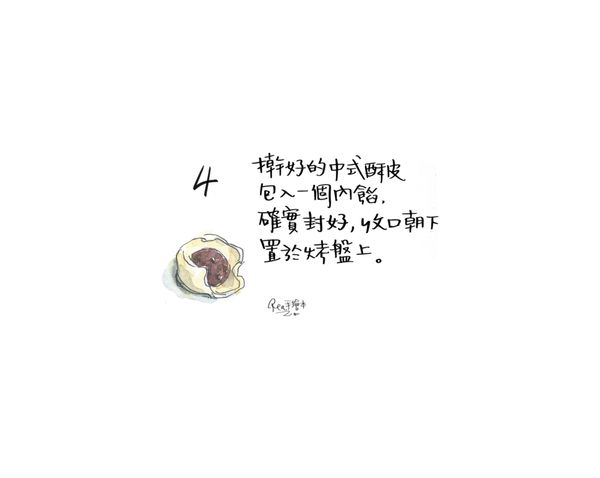 4
擀好的中式酥皮
包入一個內餡,
確實封好,收口朝下
置於烤盤上。
Rea手繪本